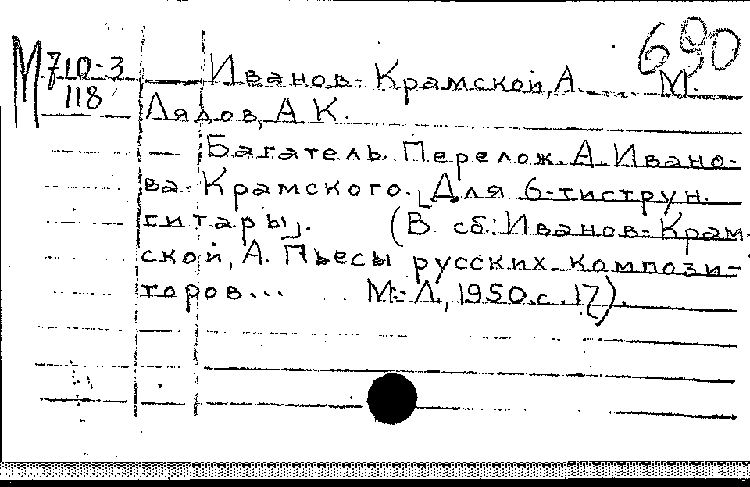 690
М 710-3 Иванов-Крамской, А. М.
118
Лядов, А К.
Багатель. Перелож. А Ивано-
ва-Крамского. [Для 6-тиструн.
гитары]. (В сб.: Иванов-Крам-
ской, А. Пьесы русских компози-
торов... М.-Л., 1950. с. 17).